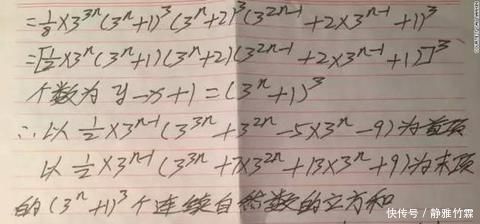 =1/8×3^{3n}(3^n+1)^3(3^n+2)^3(3^{2n-1}+2×3^{n-1}+1)^3
=[1/2×3^n(3^n+1)(3^n+2)(3^{2n-1}+2×3^{n-1}+1)]^3
个数为 y-x+1=(3^n+1)^3
∴以 1/2×3^{n-1}(3^{3n}+3^{2n}-5×3^n-9)为首项
以 1/2×3^{n-1}(3^{3n}+7×3^{2n}+13×3^n+9)为末项
的(3^n+1)^3个连续自然数的立方和
快传号 / 静雅竹霖